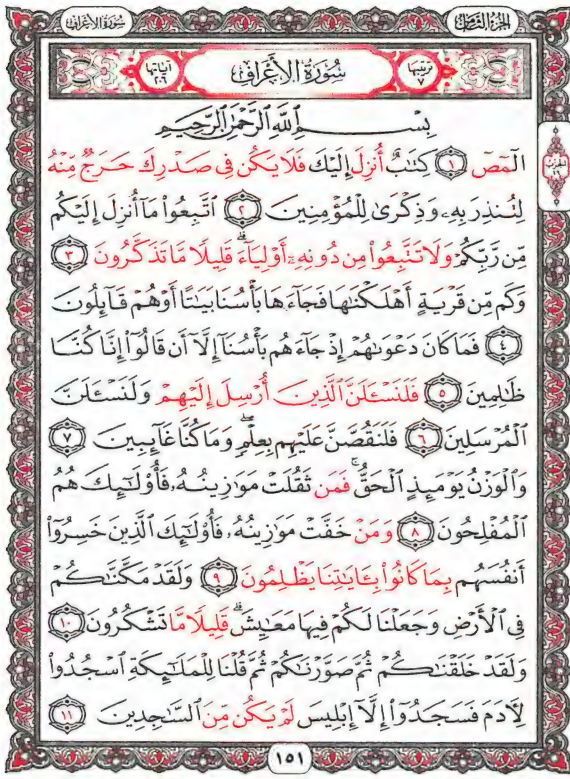 الجزء الثامن
سورة الأعراف
ترتيبها ٧
سُورَةُ الْأَعْرَافِ
آياتها ٢٠٦
بِسْمِ ٱللَّهِ ٱلرَّحْمَٰنِ ٱلرَّحِيمِ
الٓمٓصٓ ١ كِتَٰبٌ أُنزِلَ إِلَيْكَ فَلَا يَكُن فِى صَدْرِكَ حَرَجٌ مِّنْهُ
لِتُنذِرَ بِهِۦ وَذِكْرَىٰ لِلْمُؤْمِنِينَ ٢ ٱتَّبِعُوا۟ مَآ أُنزِلَ إِلَيْكُم
مِّن رَّبِّكُمْ وَلَا تَتَّبِعُوا۟ مِن دُونِهِۦٓ أَوْلِيَآءَ ۗ قَلِيلًا مَّا تَذَكَّرُونَ ٣
وَكَم مِّن قَرْيَةٍ أَهْلَكْنَٰهَا فَجَآءَهَا بَأْسُنَا بَيَٰتًا أَوْ هُمْ قَآئِلُونَ
٤ فَمَا كَانَ دَعْوَىٰهُمْ إِذْ جَآءَهُم بَأْسُنَآ إِلَّآ أَن قَالُوٓا۟ إِنَّا كُنَّا
ظَٰلِمِينَ ٥ فَلَنَسْـَٔلَنَّ ٱلَّذِينَ أُرْسِلَ إِلَيْهِمْ وَلَنَسْـَٔلَنَّ
ٱلْمُرْسَلِينَ ٦ فَلَنَقُصَّنَّ عَلَيْهِم بِعِلْمٍ ۖ وَمَا كُنَّا غَآئِبِينَ ٧
وَٱلْوَزْنُ يَوْمَئِذٍ ٱلْحَقُّ ۚ فَمَن ثَقُلَتْ مَوَٰزِينُهُۥ فَأُو۟لَٰٓئِكَ هُمُ
ٱلْمُفْلِحُونَ ٨ وَمَنْ خَفَّتْ مَوَٰزِينُهُۥ فَأُو۟لَٰٓئِكَ ٱلَّذِينَ خَسِرُوٓا۟
أَنفُسَهُم بِمَا كَانُوا۟ بِـَٔايَٰتِنَا يَظْلِمُونَ ٩ وَلَقَدْ مَكَّنَّٰكُمْ
فِى ٱلْأَرْضِ وَجَعَلْنَا لَكُمْ فِيهَا مَعَٰيِشَ ۗ قَلِيلًا مَّا تَشْكُرُونَ ١٠
وَلَقَدْ خَلَقْنَٰكُمْ ثُمَّ صَوَّرْنَٰكُمْ ثُمَّ قُلْنَا لِلْمَلَٰٓئِكَةِ ٱسْجُدُوا۟
لِـَٔادَمَ فَسَجَدُوٓا۟ إِلَّآ إِبْلِيسَ لَمْ يَكُن مِّنَ ٱلسَّٰجِدِينَ ١١
الحزب ١٦
١٥١